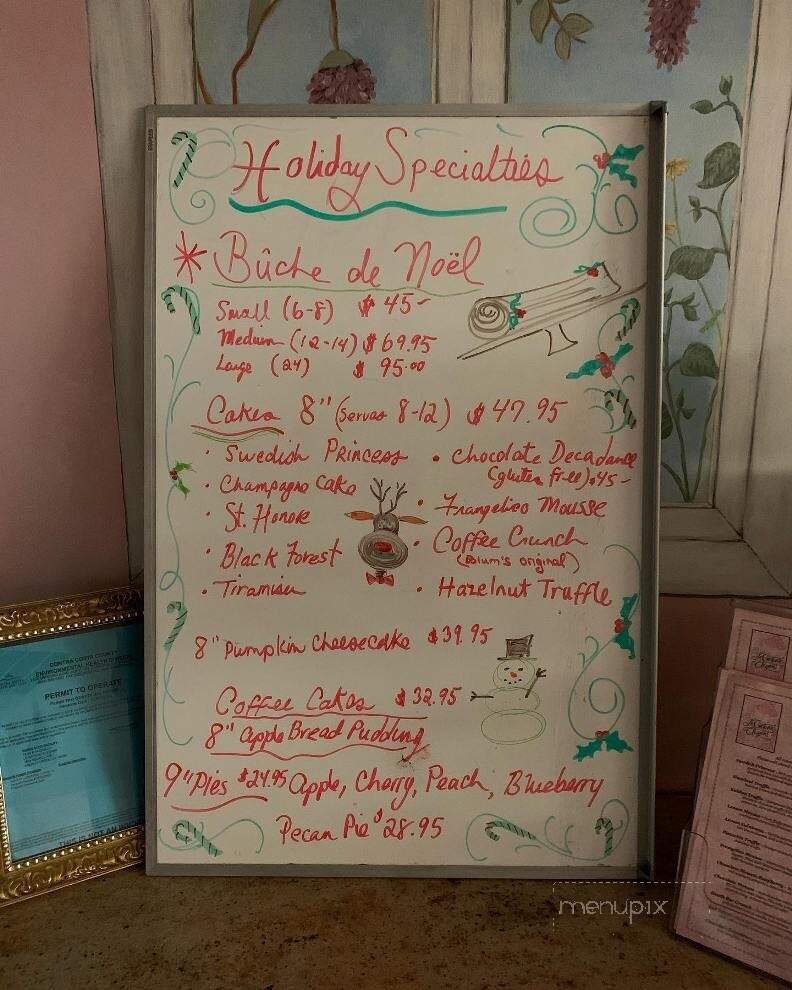 Holiday Specialties
* Bûche de Noël
Small (6-8) $45-
Medium (12-14) $69.95
Large (24) $95.00
Cakes 8" (serves 8-12) $47.95
· Swedish Princess
· Champagne Cake
· St. Honore
· Black Forest
· Tiramisu
· Chocolate Decadance
(gluten free) $45-
· Frangelico Mousse
· Coffee Crunch
(Blum's original)
· Hazelnut Truffle
8" Pumpkin Cheesecake $39.95
Coffee Cakes $32.95
8" Apple Bread Pudding
9" Pies $24.95 Apple, Cherry, Peach, Blueberry
Pecan Pie $28.95
CONTRA COSTA COUNTY
ENVIRONMENTAL HEALTH
PERMIT TO OPERATE
THIS IS NOT AN
menupix